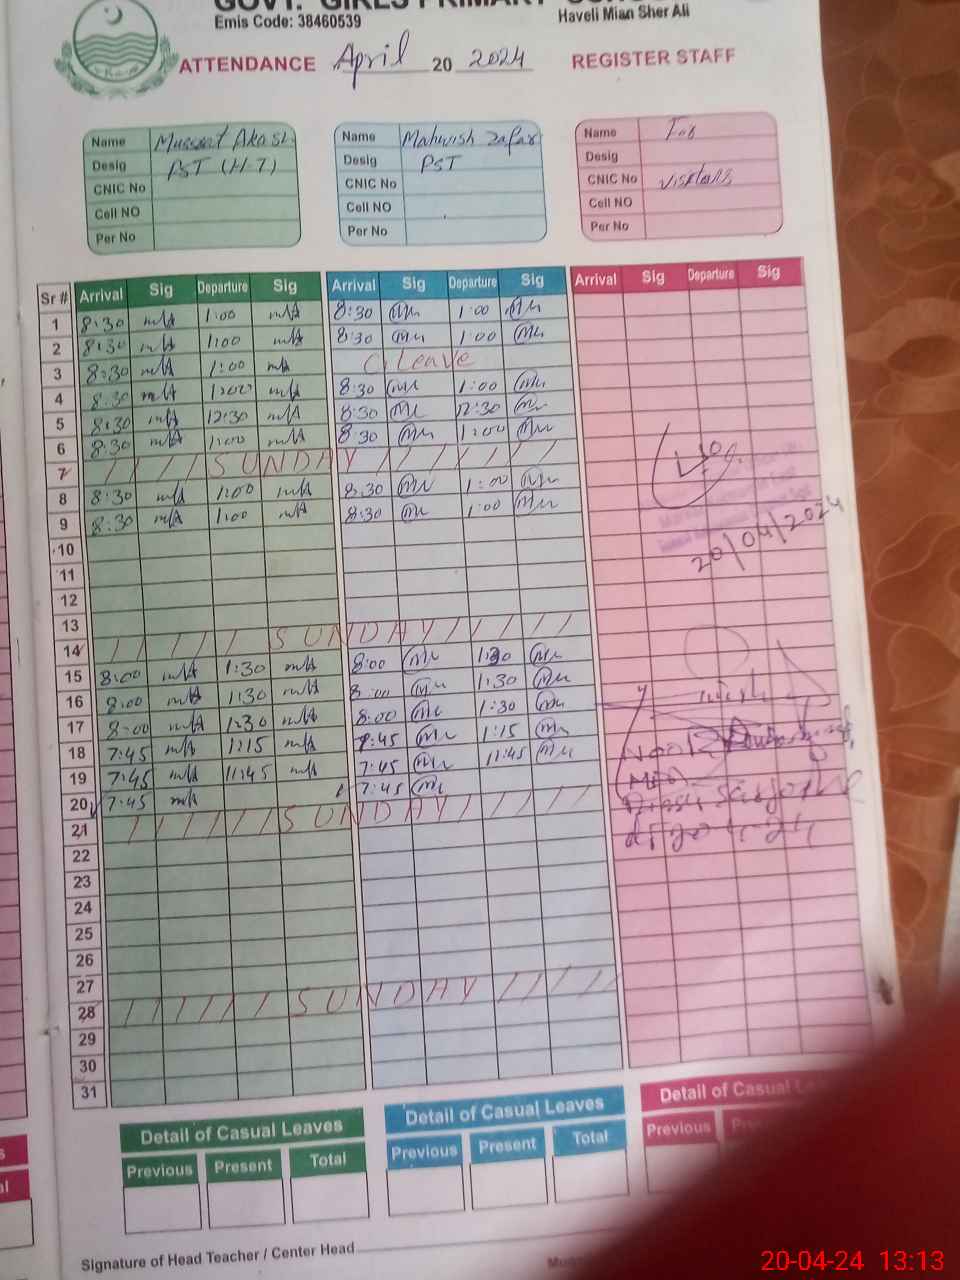 GOVT. GIRLS PRIMARY
Emis Code: 38460539 Haveli Mian Sher Ali
ATTENDANCE April 20 2024 REGISTER STAFF
Name Name Mahwish Zafar Name For
Desig PST (H-T) Desig PST Desig
CNIC No CNIC No CNIC No visitors
Cell NO Cell NO Cell NO
Per No Per No Per No
Sr # Arrival Sig Departure Sig Arrival Sig Departure Sig Arrival Sig Departure Sig
1 8:30 mA 1:00 mA 8:30 Mu 1:00 Mu
2 8:30 mA 1:00 mA 8:30 Mu 1:00 Mu
3 8:30 mA 1:00 mA C, Leave
4 8:30 mA 1:00 mA 8:30 Mu 1:00 Mu
5 8:30 mA 12:30 mA 8:30 Mu 12:30 Mu
6 8:30 mA 1:00 mA 8:30 Mu 1:00 Mu
7 SUNDAY
8 8:30 mA 1:00 mA 8:30 Mu 1:00 Mu
9 8:30 mA 1:00 mA 8:30 Mu 1:00 Mu
20/04/2024
10
11
12
13
14 SUNDAY
15 8:00 mA 1:30 mA 8:00 Mu 1:30 Mu
16 8:00 mA 1:30 mA 8:00 Mu 1:30 Mu
17 8:00 mA 1:30 mA 8:00 Mu 1:30 Mu
18 7:45 mA 1:15 mA 7:45 Mu 1:15 Mu
19 7:45 mA 11:45 mA 7:45 Mu 11:45 Mu
20 7:45 mA 7:45 Mu
21 SUNDAY
22
23
24
25
26
27
28 SUNDAY
29
30
31
Detail of Casual Leaves Detail of Casual Leaves Detail of Casual
Previous Present Total Previous Present Total Previous
Signature of Head Teacher / Center Head
20-04-24 13:13